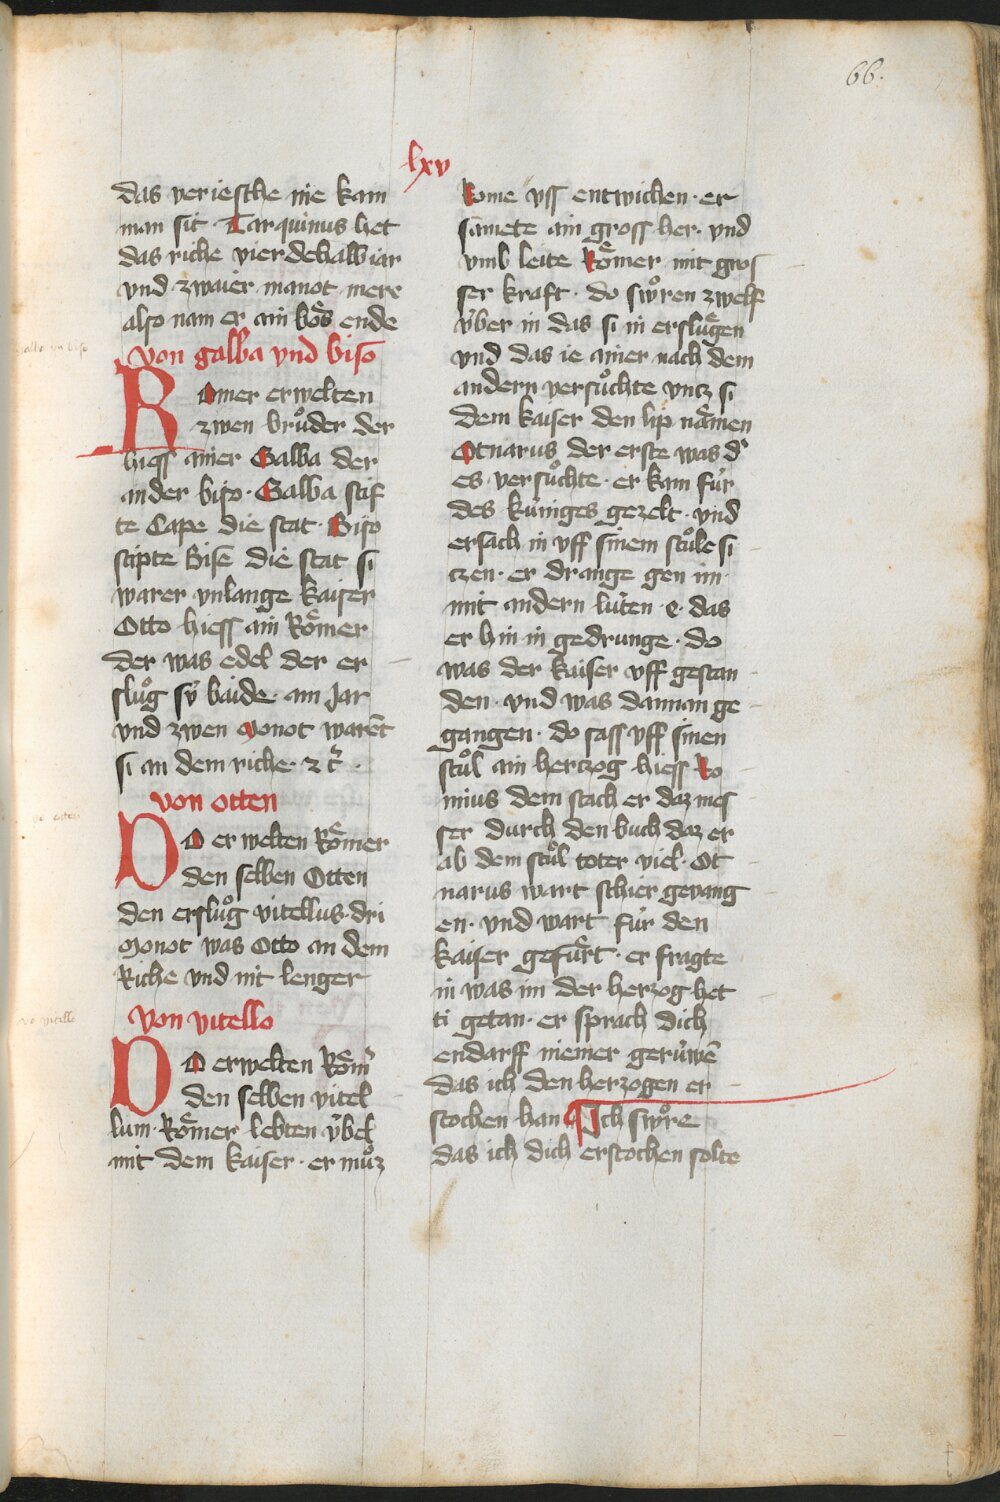 66.
lxv
das veriesche nie kam
man sit Tarquinus het
das riche vierdehalb iar
vnd zwaier manot mere
also nam er ain boͤs ende
von galba vnd biso
ROmer erwelten
zwen bruͦder der
hiess ainer Galba der
ander biso · Galba stif
te Cape die stat · Biso
stipte Bise die stat si
warer vnlange kaiser
Otto hiess ain Roͤmer
der was edel der er
sluͦg sÿ baide · ain Jar
vnd zwen Monot warēt
si an dem riche · ⁊ cͬ ·
von otten
DO er welten Roͤmer
den selben Otten
den ersluͦg vitellus · dri
Monot was Otto an dem
Riche vnd nit lenger
Von vitello
DO erwelten Roͤmͬ
den selben vitel
lum · Roͤmer lebten v̈bel
mit dem kaiser · er muͦz
Rome vss entwichen · er
samete ain gross her · vnd
vmb leite Roͤmer mit gros
ser kraft · do swͦren zwelf
v̈ber in das si in ersluͤgen
vnd das ie ainer nach dem
andern versuͦchte vncz si
dem kaiser den lip naͤmen
Otnarus der erste was dͬ
es versuͦchte · er kam fúr
des kúniges gezelt · vnd
ersach in vff sinem stuͦle si
czen · er drange gen im ·
mit andern lúten · e · das
er hin in gedrunge · do
was der kaiser vff gestan
den · vnd was dannan ge
gangen · do sass vff sinen
stuͦl ain herczog hiess Ro
nius dem stach er daz mes
ser durch den buch daz er
ab dem stuͦl toter viel · Ot
narus wart schier gevang
en · vnd wart fúr den
kaiser gefuͤrt · er fragte
in was im der herzog het
ti getan · er sprach dich
endarff niemer gerúwē
das ich den herzogen er
stochen han Ich swͦre
das ich dich erstochen solte